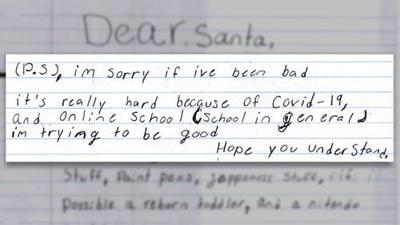 Dear, Santa,
(P.S), im sorry if ive been bad
it's really hard because of Covid-19,
and online school (School in general)
im trying to be good
Hope you understand,
Stuff, Paint pens, jappeness Stuff,
possible a reborn toddler, and a nitendo